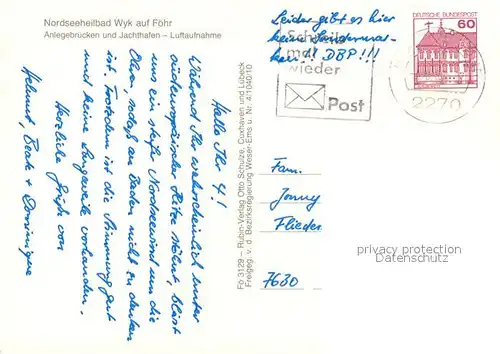 Nordseeheilbad Wyk auf Föhr
Anlegebrücken und Jachthafen – Luftaufnahme
Hallo Ihr 4!
Während Ihr wahrscheinlich unter
südeuropäischer Hitze stöhnt, bläst
uns ein steifer Nordseewind um die
Ohren, sodaß an Baden nicht zu denken
ist. Trotzdem ist die Stimmung gut
und keine Langeweile vorhanden.
Herzliche Grüße von
Helmut, Beate + Dominique
Fo 3129 – Rubin-Verlag Otto Schulze, Cuxhaven und Lübeck
Freigeg. v. d. Bezirksregierung Weser-Ems u. Nr. 41040010
Leider gibt es hier
keine Sondermar-
ken!! DBP!!!
Schreib
mal
wieder
Post
DEUTSCHE BUNDESPOST
60
2270
Fam.
Jonny
Flieder
7630
privacy protection
Datenschutz